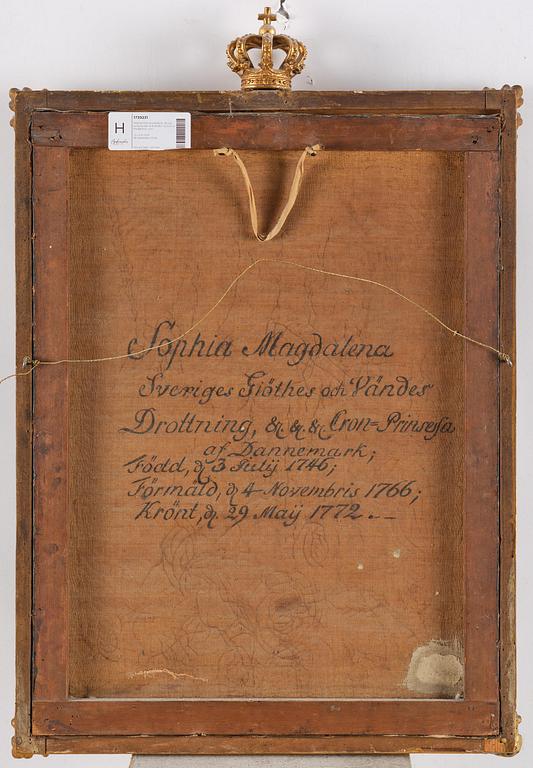 H
1739231
Sophia Magdalena
Sveriges Giöthes och Vändes
Drottning, &c, &c, &c, Cron=Prinsessa
af Dannemark;
Född, d. 3 Julij 1746;
Förmäld, d. 4 Novembris 1766;
Krönt, d. 29 Maÿ 1772.—